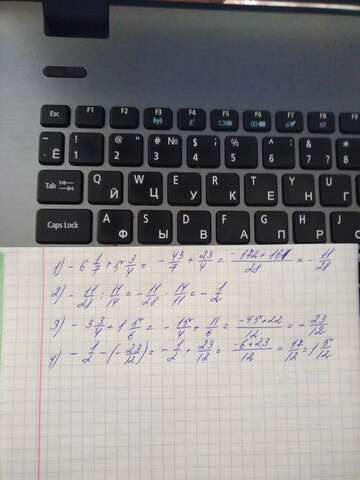 Esc F1 F2 F3 F4 F5 F6 F7 F8 F9
Ё ! 1 @ " 2 # № 3 $ ; 4 % 5 ^ : 6 & ? 7 * 8
Tab Q Й W Ц E У R К T Е Y Н U Г
Caps Lock A Ф S Ы D В F А G П H Р J О
1) - 6 1/7 + 5 3/4 = - 43/7 + 23/4 = (-172 + 161)/28 = - 11/28
2) - 11/28 : 11/14 = - 11/28 · 14/11 = - 1/2
3) - 3 3/4 + 1 5/6 = - 15/4 + 11/6 = (-45 + 22)/12 = - 23/12
4) - 1/2 - (- 23/12) = - 1/2 + 23/12 = (-6 + 23)/12 = /12 = 1 5/12